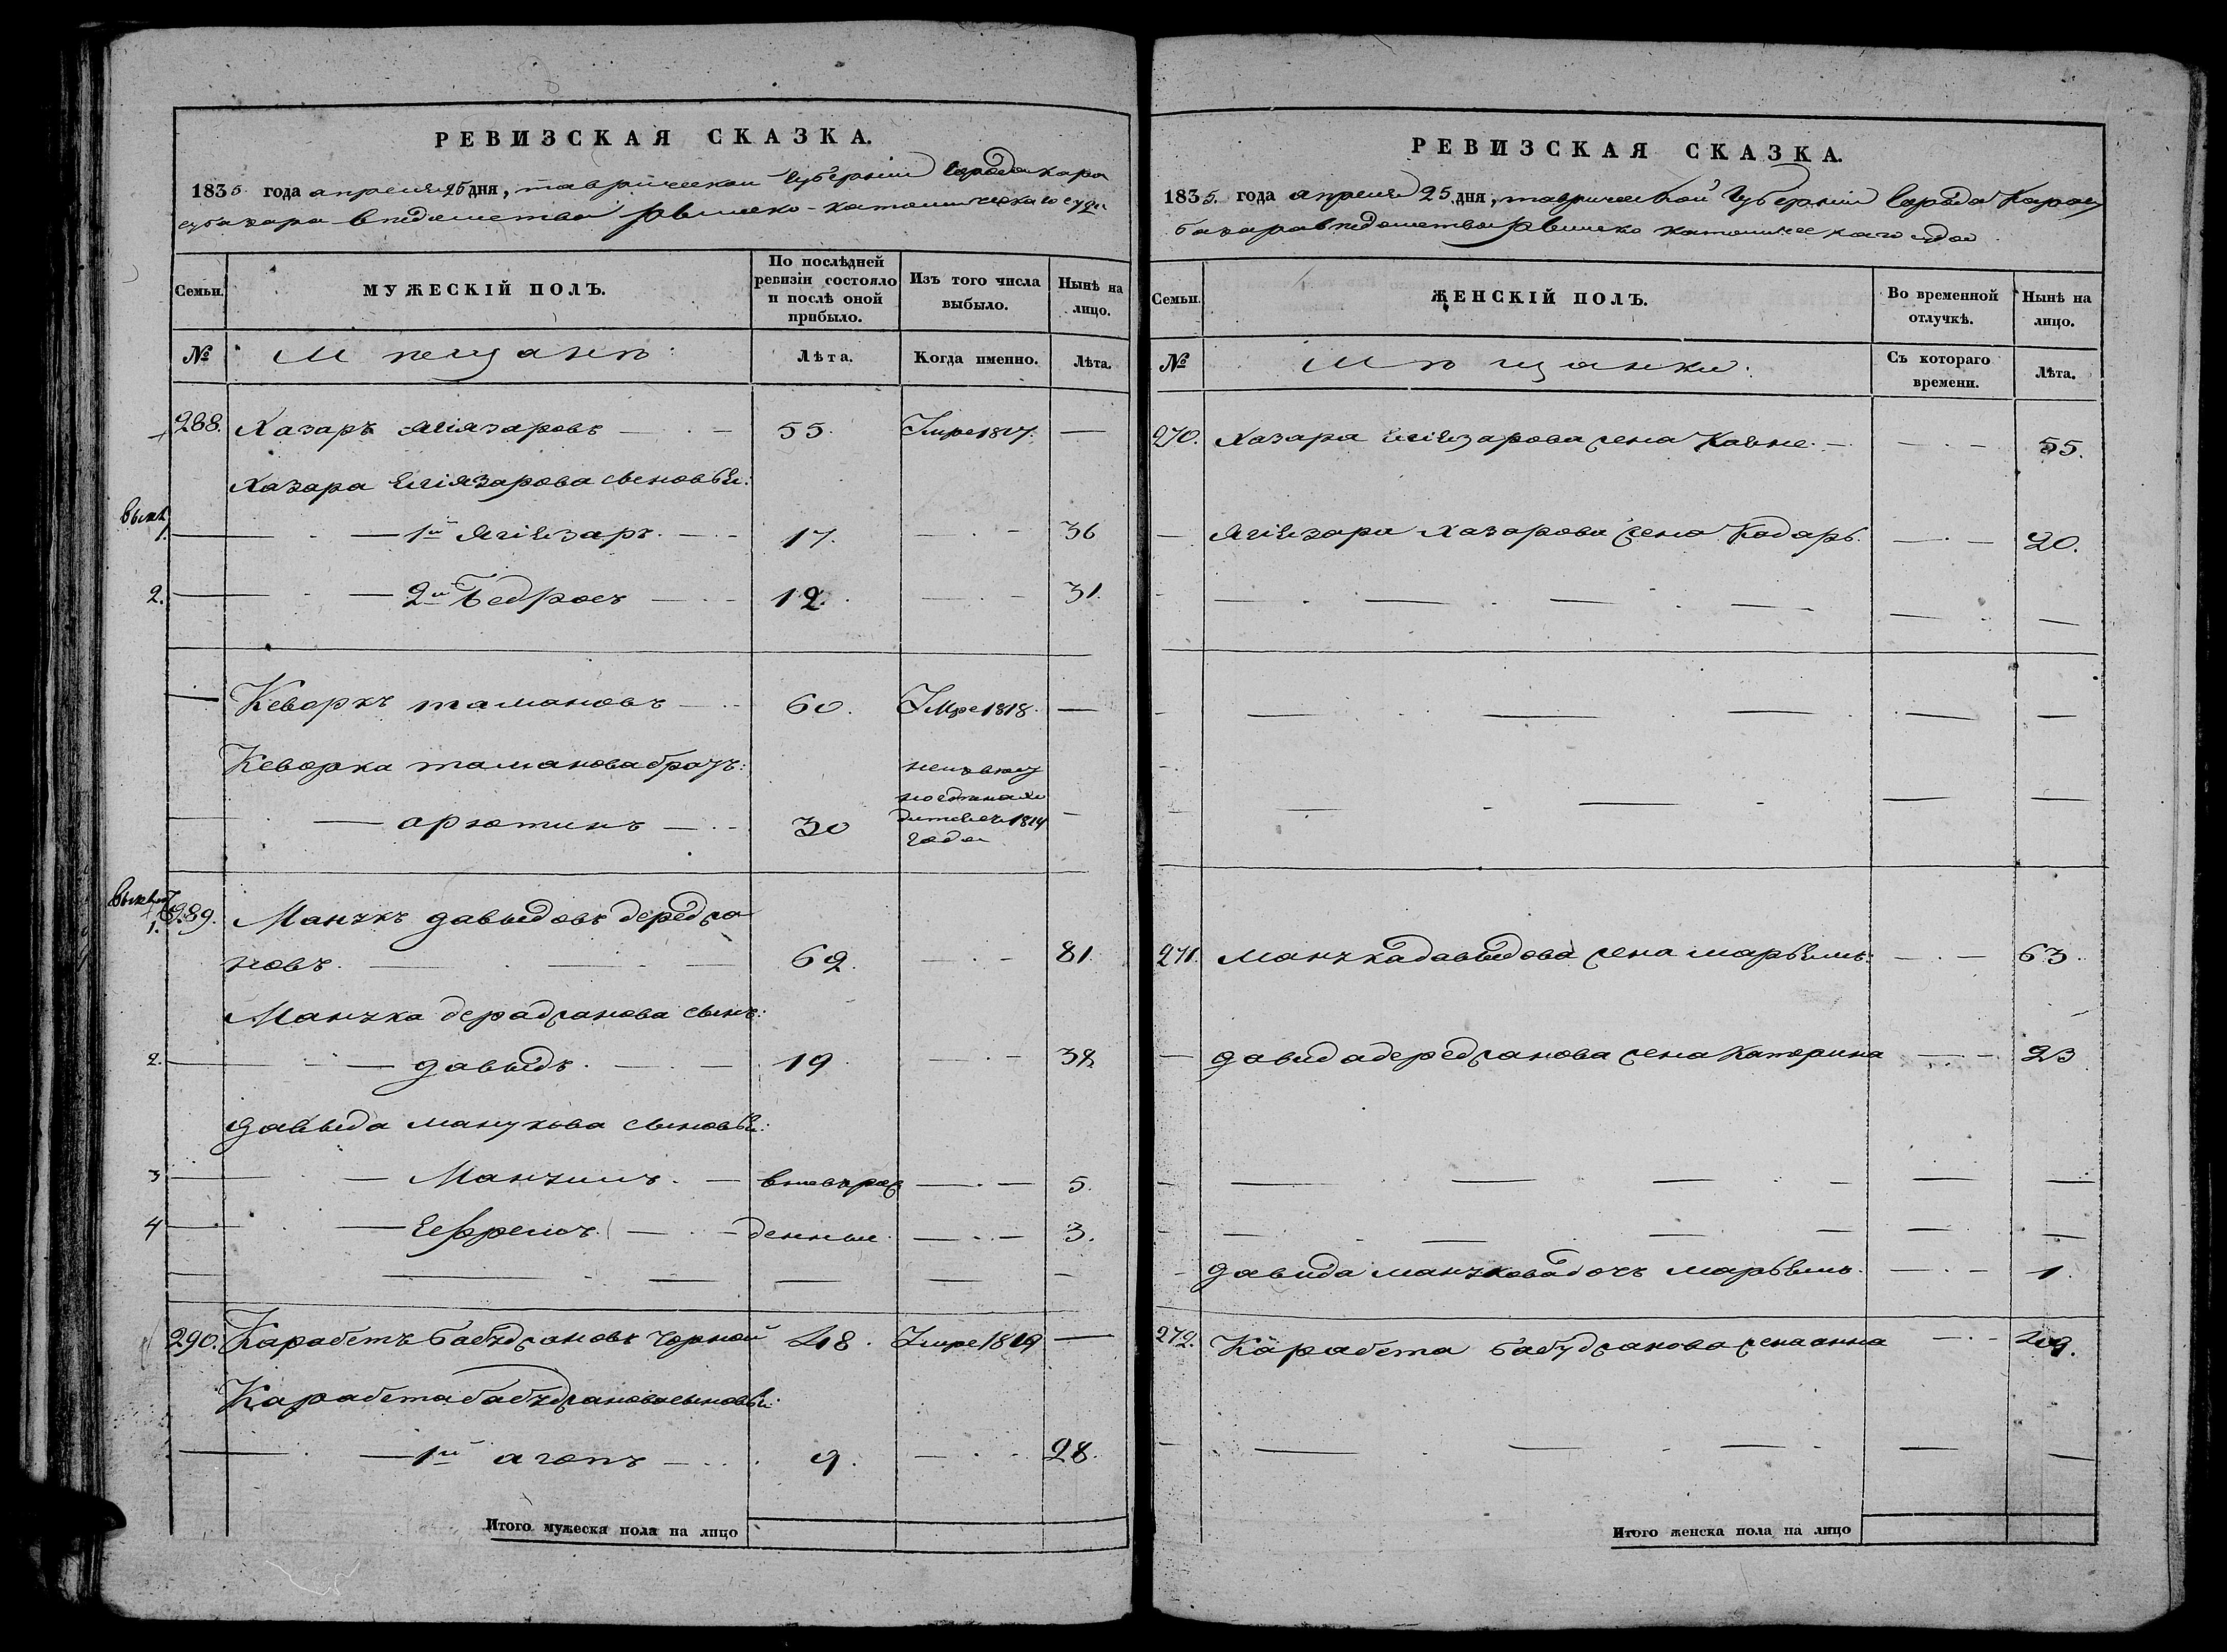 РЕВИЗСКАЯ СКАЗКА.
1835 года апреля 25 дня, таврической губернии города кара
субазара ведомства римско-католическаго суда
Семьи.
МУЖЕСКІЙ ПОЛЪ.
По послѣдней ревизіи состояло и послѣ оной прибыло.
Изъ того числа выбыло.
Нынѣ на лицо.
№
Мещанъ
Лѣта.
Когда именно.
Лѣта.
288. Хазаръ 55. 1827. —
Хазара сыновья:
1. 1й 17. — 36
2. 2й Бедросъ 12. — 31.
Кеворкъ тамановъ 60. Умре 1818. —
Кеворка таманова братъ:
арютинъ 30 1814 года —
289. 1. Манукъ давыдовъ дереджа
новъ. 62. — 81.
Манука дераджанова сынъ:
2. давыдъ. 19. — 38
давыда манукова сыновья:
3 — внов рож — 5.
4 Ефремъ. денные. — 3.
290. Карабетъ бабуджановъ чорной 48. Умре 1819 —
Карабета бабуджанова сыновья:
1й агопъ 9. — 28.
Итого мужеска пола на лицо
РЕВИЗСКАЯ СКАЗКА.
1835. года апреля 25 дня, таврической губерніи города Карасу
базара ведомства римско католическаго суда
Семьи.
ЖЕНСКІЙ ПОЛЪ.
Во временной отлучкѣ.
Нынѣ на лицо.
№
Мѣщанки.
Съ котораго времени.
Лѣта.
270. Хазара жена — 55.
Хазарова жена — 20.
271. манука давыдова жена марьямъ: — 63.
давида дереджанова жена Катерина — 23
давида манукова дочь марьямъ. — 1.
272. Карабета бабуджанова жена анна — 49.
Итого женска пола на лицо